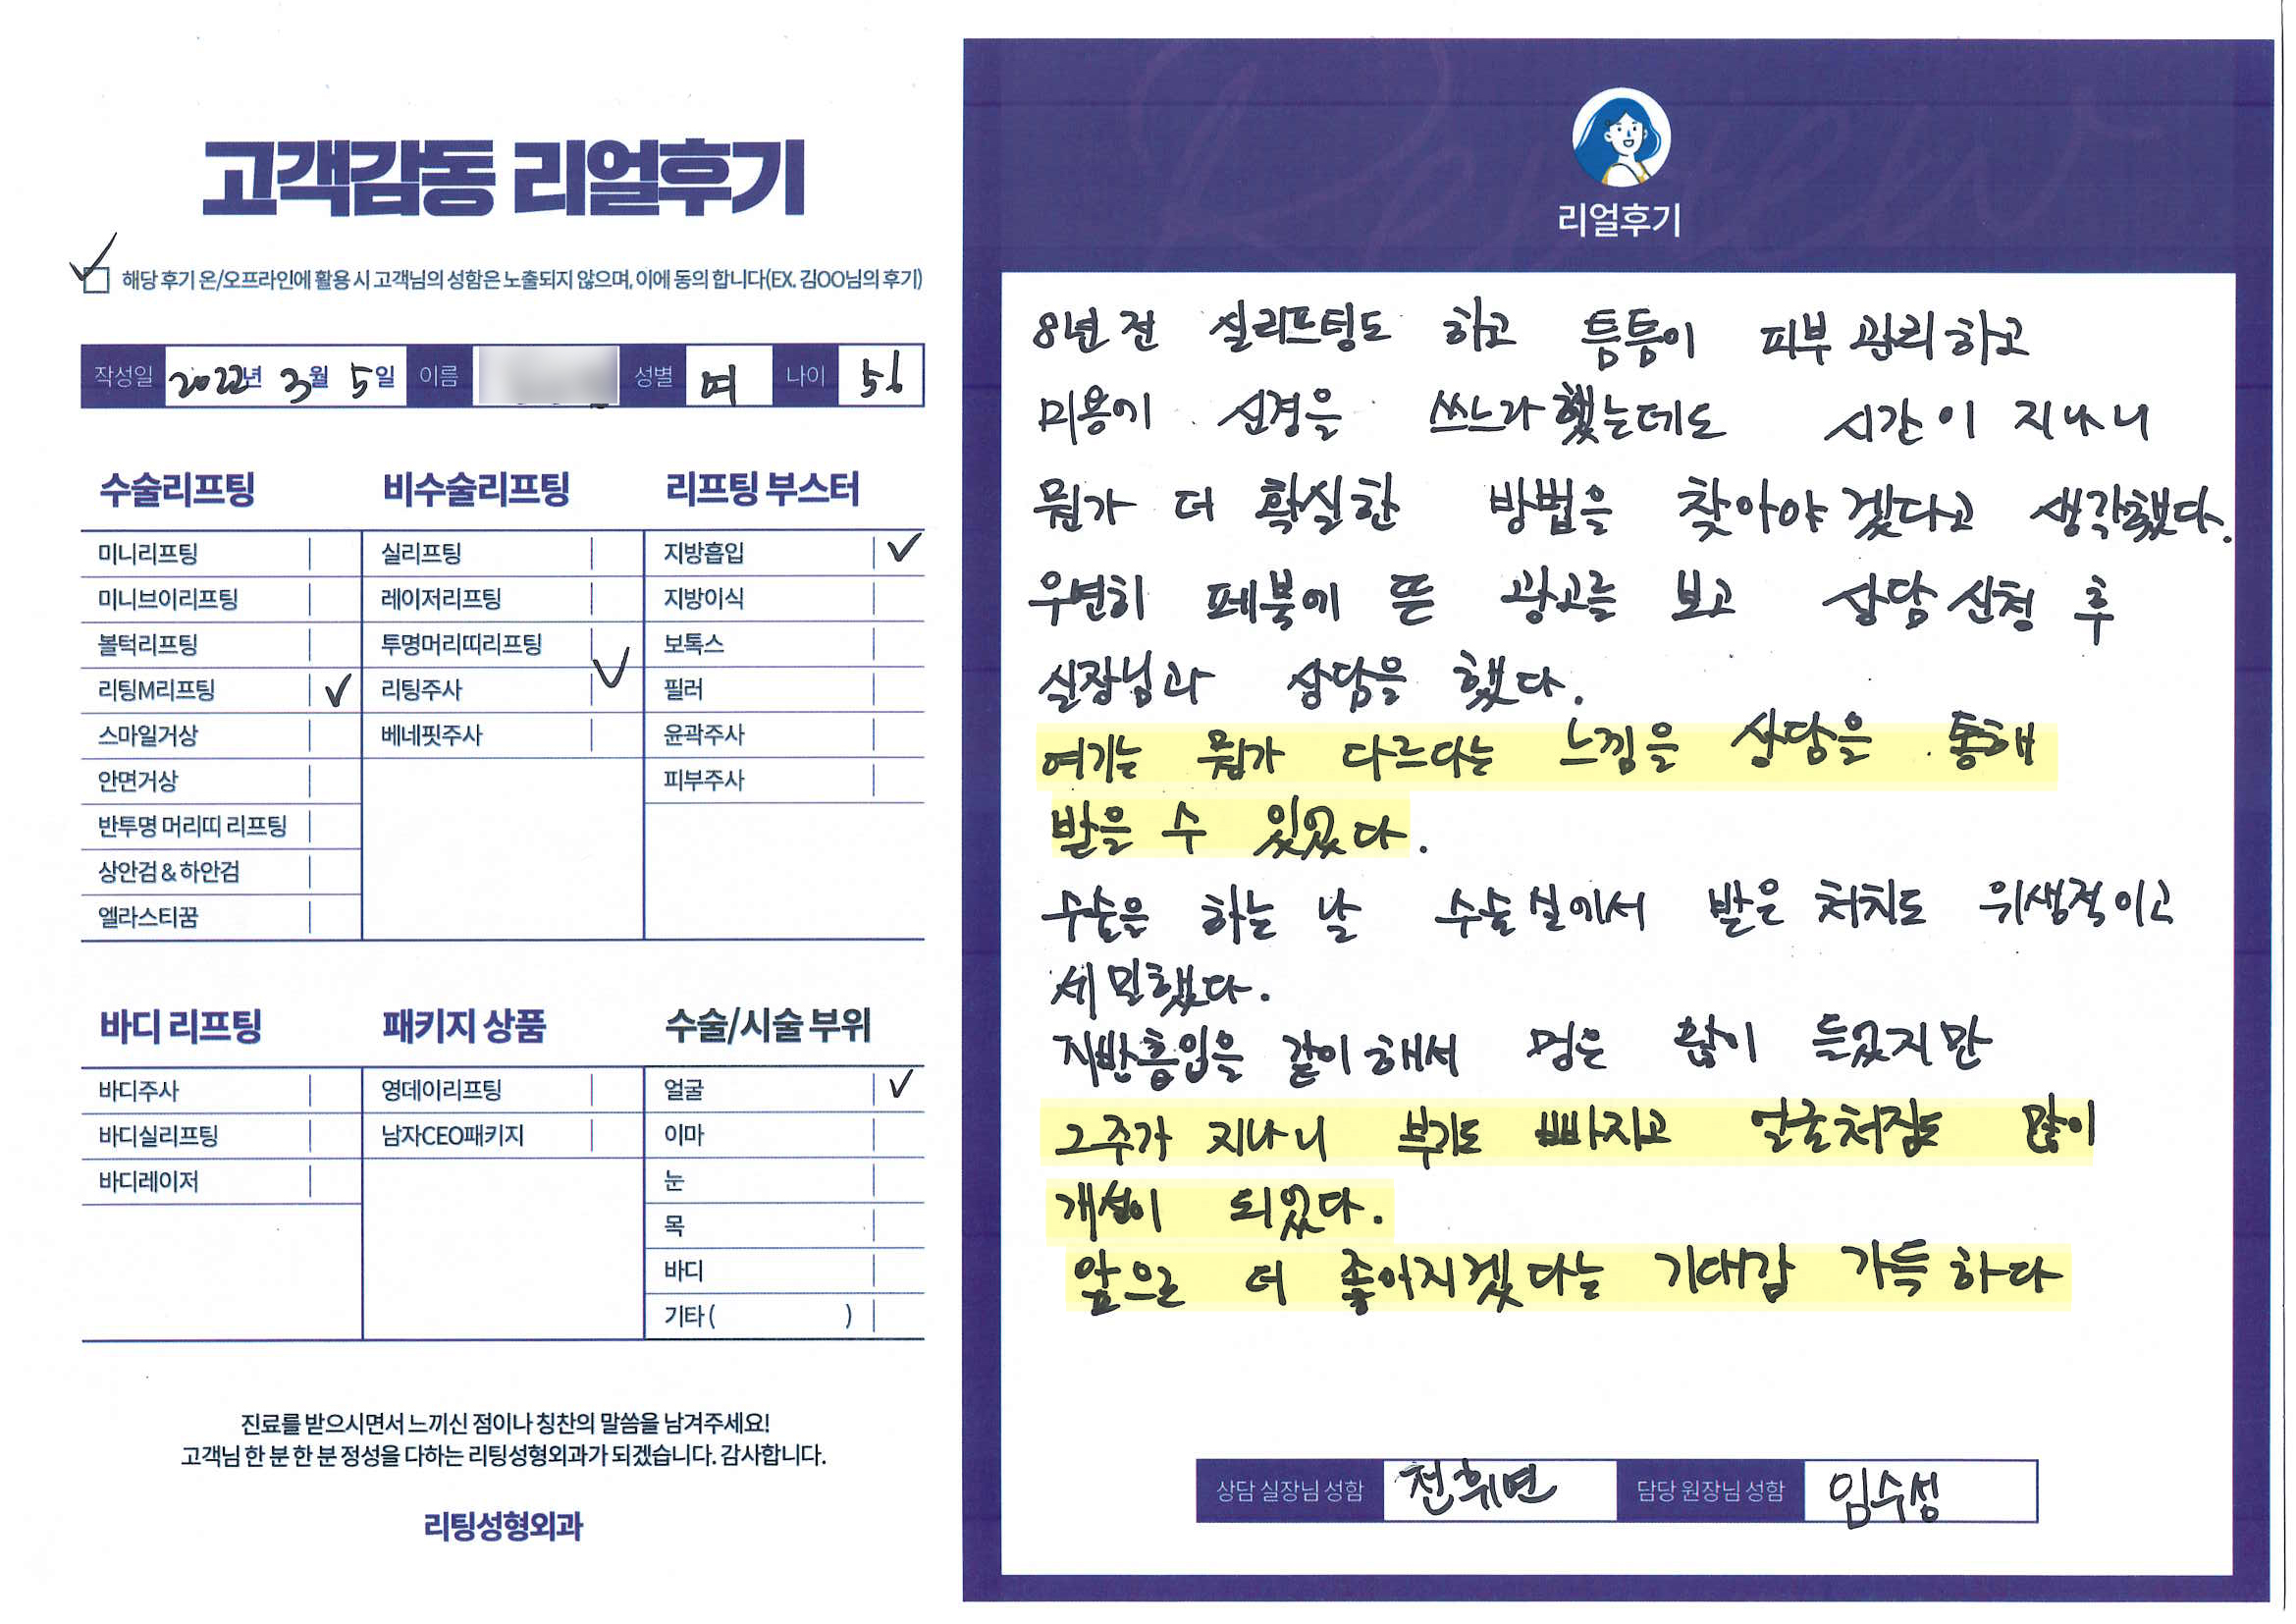 고객감동 리얼후기
✓ 해당 후기 온/오프라인에 활용 시 고객님의 성함은 노출되지 않으며, 이에 동의 합니다(EX. 김OO님의 후기)
작성일 2022년 3월 5일 이름 성별 여 나이 51
수술리프팅
미니리프팅
미니브이리프팅
볼턱리프팅
리팅M리프팅 ✓
스마일거상
안면거상
반투명 머리띠 리프팅
상안검 & 하안검
엘라스티꿈
비수술리프팅
실리프팅
레이저리프팅
투명머리띠리프팅
리팅주사 ✓
베네핏주사
리프팅 부스터
지방흡입 ✓
지방이식
보톡스
필러
윤곽주사
피부주사
바디 리프팅
바디주사
바디실리프팅
바디레이저
패키지 상품
영데이리프팅
남자CEO패키지
수술/시술 부위
얼굴 ✓
이마
눈
목
바디
기타 ( )
진료를 받으시면서 느끼신 점이나 칭찬의 말씀을 남겨주세요!
고객님 한 분 한 분 정성을 다하는 리팅성형외과가 되겠습니다. 감사합니다.
리팅성형외과
Review
리얼후기
8년 전 실리프팅도 하고 틈틈이 피부 관리하고
미용에 신경을 쓰느라 했는데도 시간이 지나니
뭔가 더 확실한 방법을 찾아야 겠다고 생각했다.
우연히 페북에 뜬 광고를 보고 상담 신청 후
실장님과 상담을 했다.
여기는 뭔가 다르다는 느낌을 상담을 통해
받을 수 있었다.
수술은 하는 날 수술실에서 받은 처치도 위생적이고
세밀했다.
지방흡입을 같이 해서 멍은 많이 들었지만
그주가 지나니 부기도 빠지고 얼굴처짐도 많이
개선이 되었다.
앞으로 더 좋아지겠다는 기대감 가득하다
상담 실장님 성함 전휘연 담당 원장님 성함 임수성